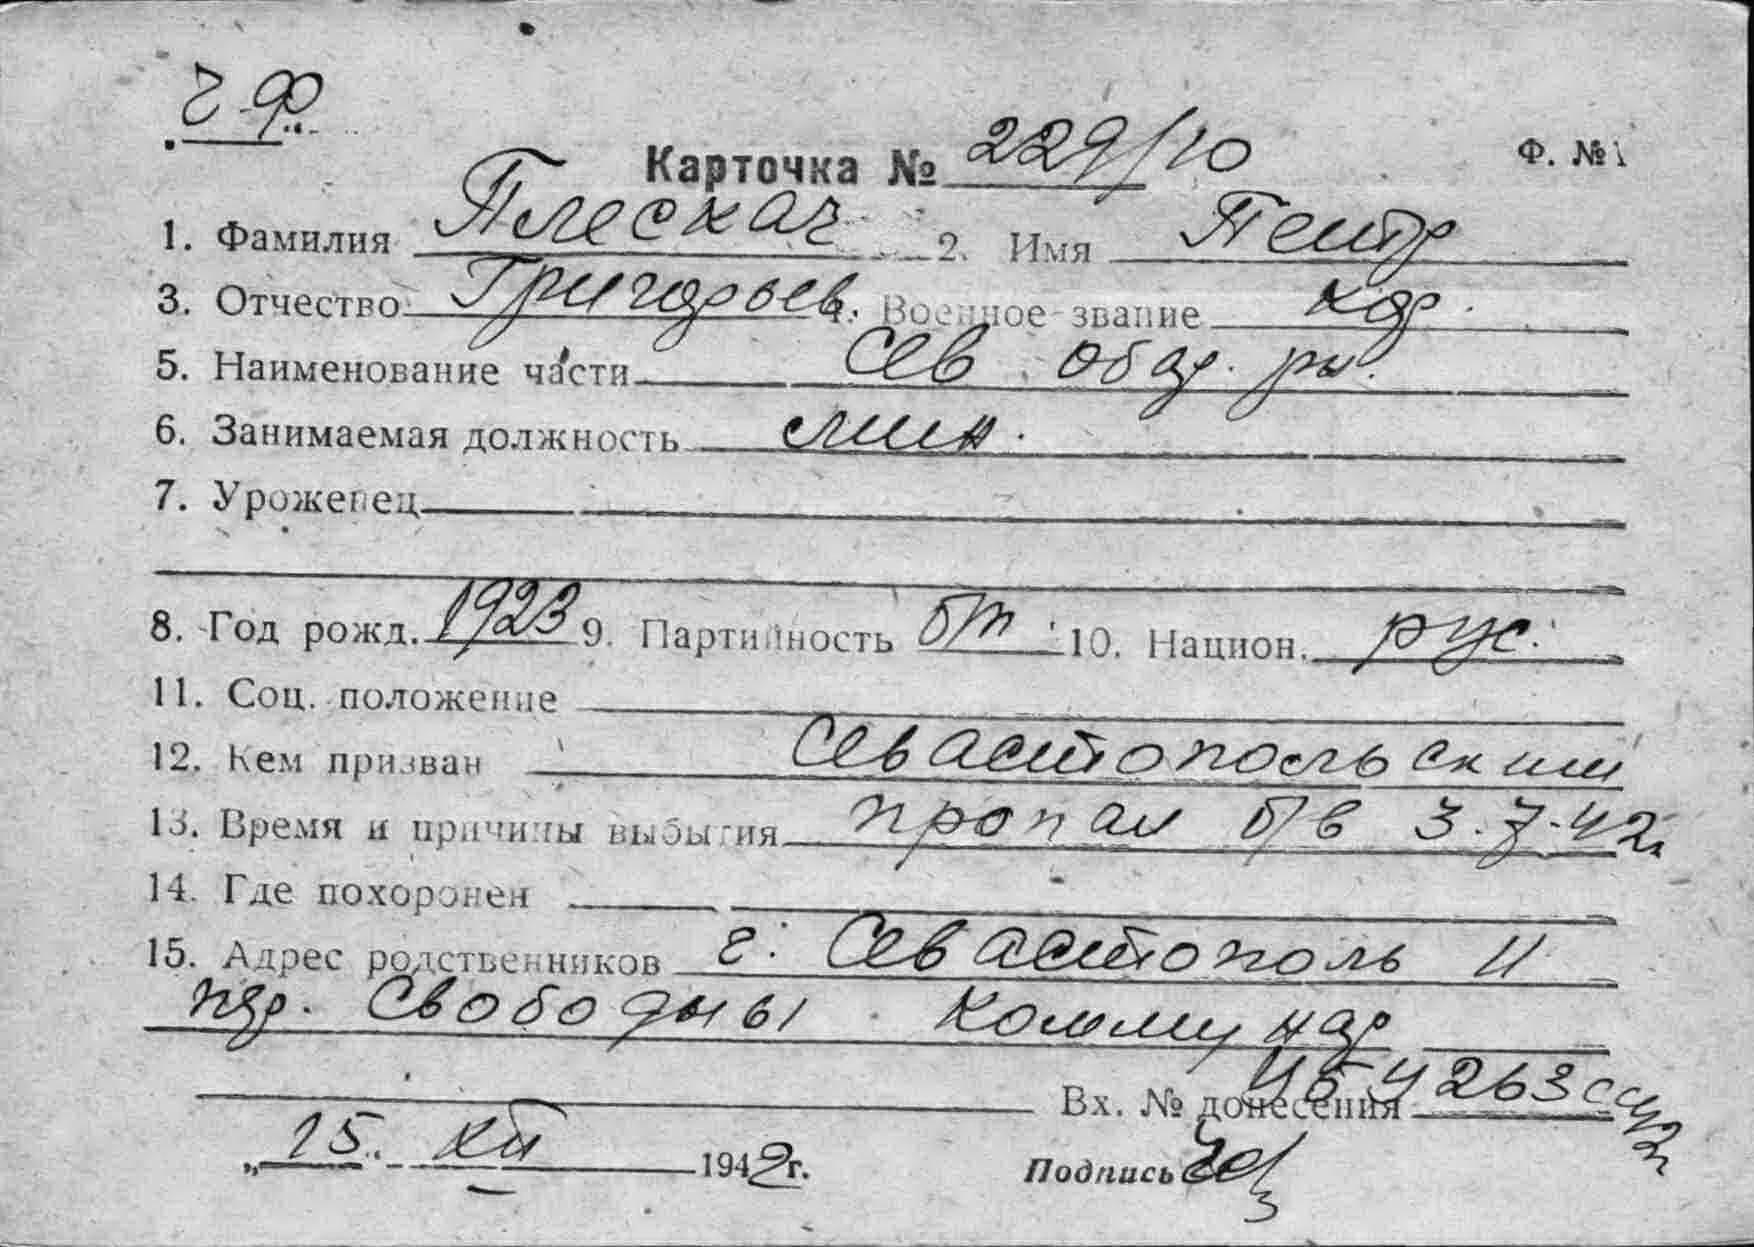 Ч Ф
Карточка № 229/10 Ф. №1
1. Фамилия Плескач 2. Имя Петр
3. Отчество Григорьев. 4. Военное звание кр.
5. Наименование части Сев. обор. р-н.
6. Занимаемая должность мин.
7. Уроженец
8. Год рожд. 1923 9. Партийность б/п 10. Национ. рус.
11. Соц. положение
12. Кем призван Севастопольским
13. Время и причины выбытия пропал б/в 3.7.42г
14. Где похоронен
15. Адрес родственников г. Севастополь 11
пер. Свободны Коммунар
Вх. № донесения 454263
„15„ XII 1942г. Подпись